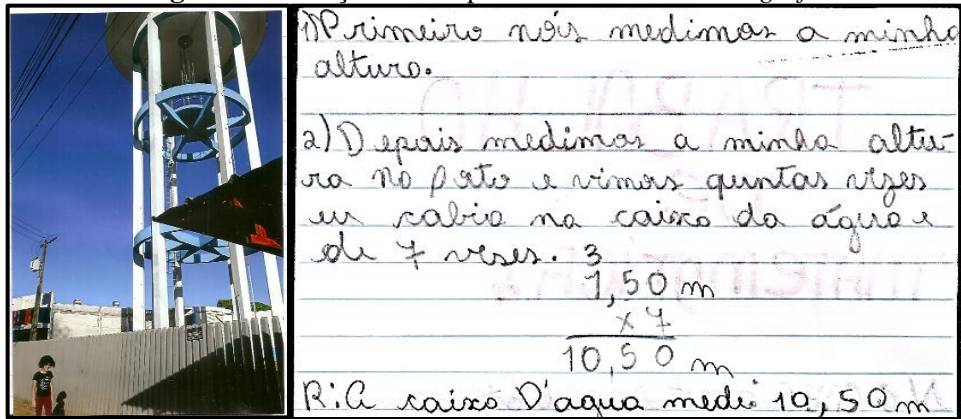 1) Primeiro nós medimos a minha
altura.
2) Depois medimos a minha altu-
ra no foto e vimos quntas vezes
eu cabia na caixa da água e
de 7 veses. 3
1,50 m
x 7
10,50 m
R: A caixa D'agua medi 10,50 m